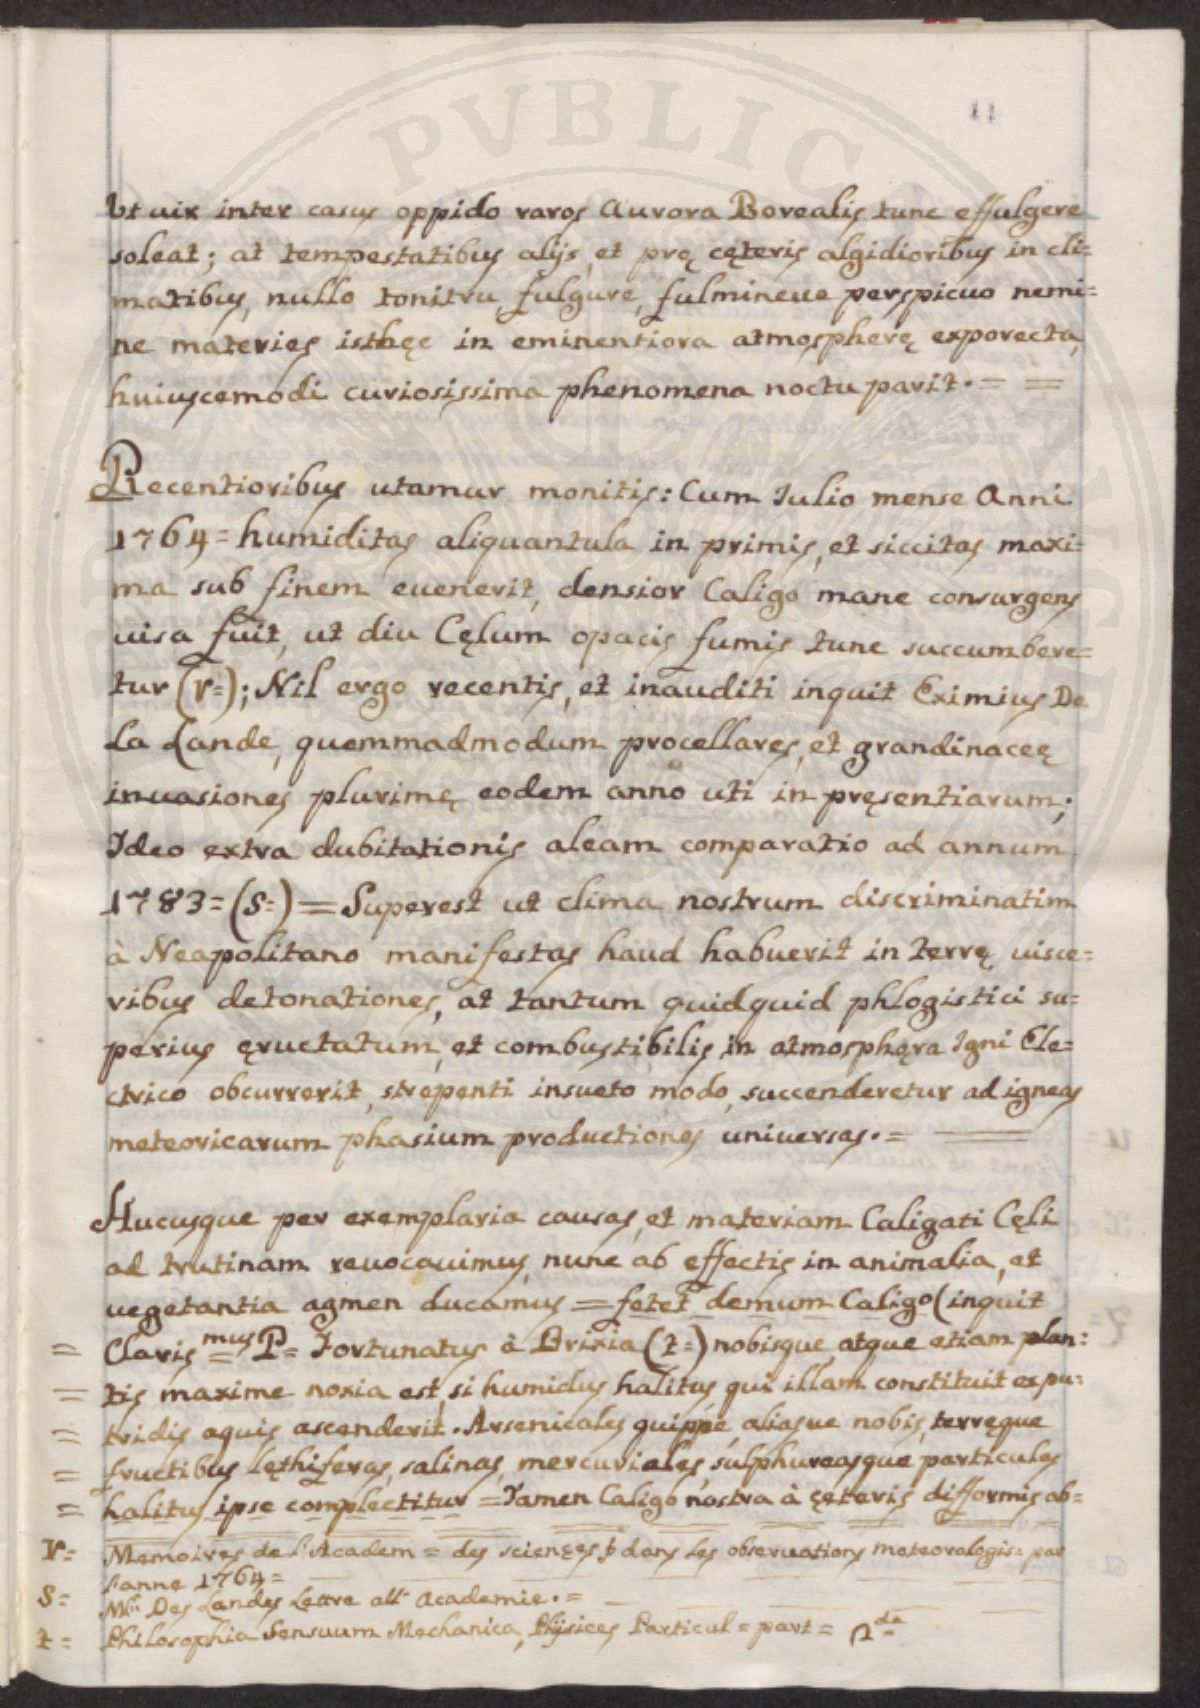 11
Vt uix inter casus oppido raros Aurora Borealis tunc effulgere
soleat; at tempestatibus alijs, et prę cęteris algidioribus in cli=
matibus, nullo tonitru, fulgure, fulmineue perspicuo nemi=
ne materies isthęc in eminentiora atmospherę exporecta,
huiuscemodi curiosissima phenomena noctu parit.= =
Recentioribus utamur monitis: Cum Iulio mense Anni
1764= humiditas aliquantula in primis, et siccitas maxi=
ma sub finem euenerit, densior Caligo mane consurgens
uisa fuit, ut diu Cęlum opacis fumis tunc succumbere=
tur (r=); Nil ergo recentis, et inauditi inquit Eximius De
La Lande, quemmadmodum procellares, et grandinaceę
inuasiones plurimę eodem anno uti in pręsentiarum;
Ideo extra dubitationis aleam comparatio ad annum
1783= (s=) = Superest ut clima nostrum discriminatim
à Neapolitano manifestas haud habuerit in terrę uisce=
ribus detonationes, at tantum quidquid phlogistici su=
perius ęructatum, et combustibilis in atmosphęra Igni Ele=
ctrico obcurrerit, strepenti insueto modo, succenderetur ad igneas
meteoricarum phasium productiones uniuersas.=
Hucusque per exemplaria causas, et materiam Caligati Cęli
ad trutinam reuocauimus, nunc ab effectis in animalia, et
uegetantia agmen ducamus = fetet demum Caligo (inquit
= Claris mus= P= Fortunatus à Brixia (t=) nobisque atque etiam plan:
= tis maxime noxia est, si humidus halitus qui illam constituit ex pu:
= tridis aquis ascenderit. Arsenicales quippe, aliasue nobis, terręque
= fructibus lęthiferas, salinas, mercuriales, sulphureasque particulas
= halitus ipse complectitur = Tamen Caligo nostra à cęteris difformis ab=
r= Memoires de l'Academ = des scienęes dans les obseruations meteorologis= par
l'anne 1764=
s= Mr. Des Landes Lettre all' Academie.=
t= Philosophia Sensuum Mechanica, Physices Particul = part = 2da
PVBLIC